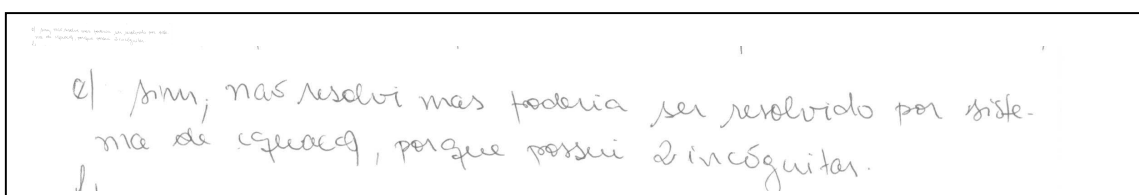 c) sim, não resolvi mas poderia ser resolvido por siste-
ma de equaçõ, porque possui 2 incógnitas.